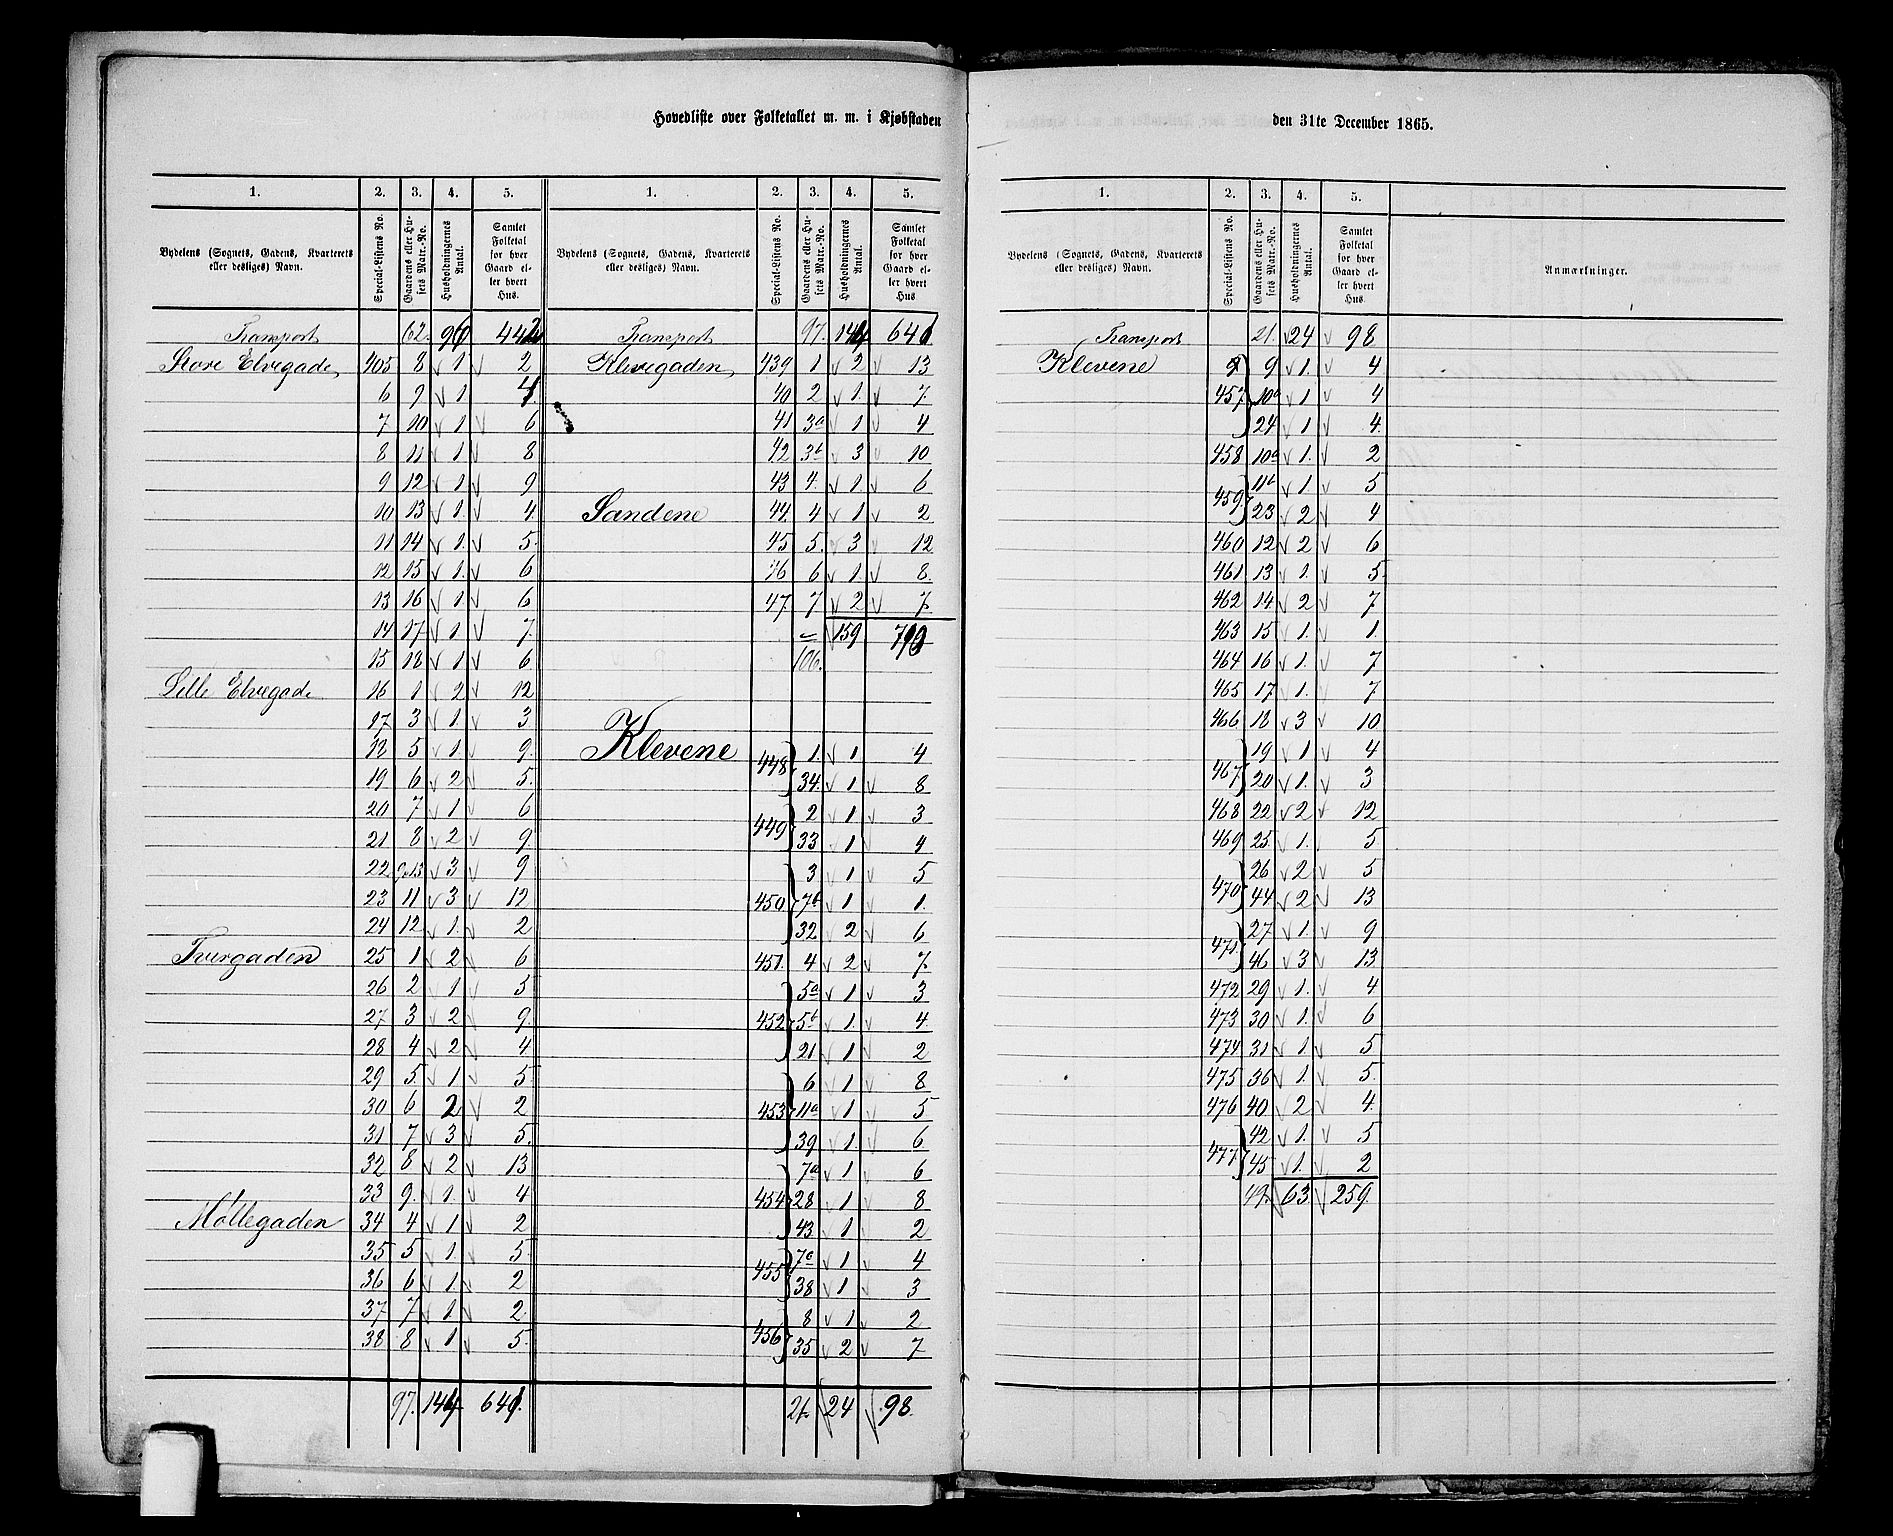 Hovedliste over Folketallet m. m. i Kjøbstaden den 31te December 1865.
1. 2. 3. 4. 5. 1. 2. 3. 4. 5.
Bydelens (Sognets, Gadens, Kvarterets eller desliges) Navn. Special-Listens No. Gaardens eller Husets Matr.-No. Husholdningernes Antal. Samlet Folketal for hver Gaard eller hvert Hus. Bydelens (Sognets, Gadens, Kvarterets eller desliges) Navn. Special-Listens No. Gaardens eller Husets Matr.-No. Husholdningernes Antal. Samlet Folketal for hver Gaard eller hvert Hus
Transport 62. 96
Store Elvegade 405 8 1 2
6 9 1 4.
7 10 1 6
8 11 1 8
9 12 1 9
10 13 1. 4.
11 14 1. 5.
12 15 1. 6
13 16 1. 6
14 17 1 7.
15 18 1 6
Lille Elvegade 16 1 2 12
17 3 1. 3
18 5 1. 9.
19 6 2 5.
20 7 1 6
21 8 2 9
22 9.13 3 9
23 11 3 12
24 12 1. 2
Tvergaden 25 1 2 6
26 2 1 5
27 3 2 9.
28 4 2 4
29 5. 1 5.
30 6 2 2
31 7 3 5.
32 8 2 13.
33 9. 1. 4
Møllegaden 34 4 1 2
35 5 1. 5.
36 6 1. 2
37 7 1 2.
38 8 1 5.
97. 144 641.
Transport 97. 144 641
Klevegaden 439 1 2 13
40 2 1. 7.
41 3a 1 4
42 3b 3 10
43 4. 1. 6
Sandene 44. 4 1 2
45 5. 3 12
46 6 1 8.
47. 7 2 7.
159 710
106.
Klevene 448 1. 1 4
34. 1 8
449 2 1 3
33 1 4
3 1 5
450 7b 1 1.
32 2 6
451. 4 2 7.
5a 1 3
452 5b 1. 4.
21 1 2
6 1 8
453 11a 1 5
39 1. 6
7a 1 6
454 28 1 8
43 1 2
455 7c 1 4
38 1 3
8 1 2
456 35 2 7
21. 24 98.
1. 2. 3. 4. 5.
Bydelens (Sognets, Gadens, Kvarterets eller desliges) Navn. Special-Listens No. Gaardens eller Husets Matr.-No. Husholdningernes Antal. Samlet Folketal for hver Gaard eller hvert Hus Anmærkninger.
Transport 21. 24 98
Klevene 9 1. 4
457 10a 1 4
24 1 4.
458 10a 1. 2
459. 11b 1 5
23 2 4
460 12 2 6
461 13 1. 5
462 14 2 7
463 15 1. 1.
464 16 1. 7
465 17 1. 7
466 18 3 10
19 1 4
467 20 1. 3
468 22 2 12
469 25 1. 5
26 2 5
470 44 2 13
27 1. 9
471. 46 3 13
472 29 1. 4
473 30 1. 6
474 31 1. 5
475 36 1. 5.
476 40 2 4.
42 1. 5
477. 45 1. 2
49. 63 259.